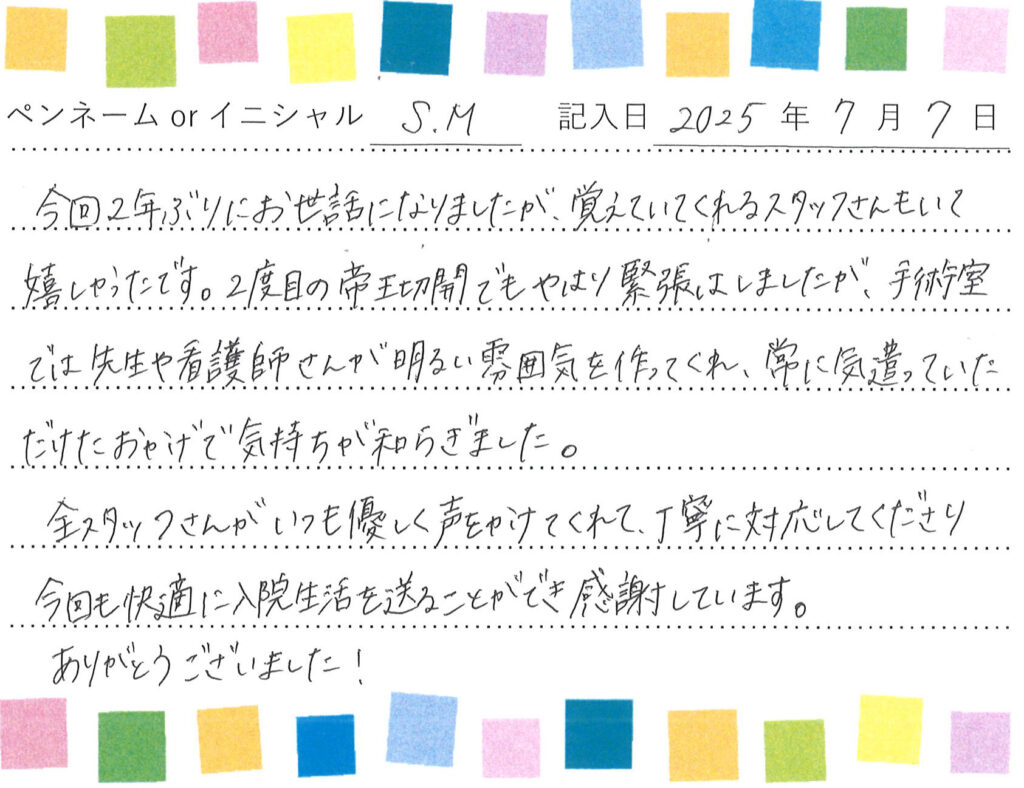 ペンネーム or イニシャル S.M 記入日 2025 年 7 月 7 日
今回2年ぶりにお世話になりましたが、覚えていてくれるスタッフさんもいて
嬉しかったです。2度目の帝王切開でもやはり緊張はしましたが、手術室
では先生や看護師さんが明るい雰囲気を作ってくれ、常に気遣っていた
だけたおかげで気持ちが和らぎました。
全スタッフさんがいつも優しく声をかけてくれて、丁寧に対応してくださり
今回も快適に入院生活を送ることができ感謝しています。
ありがとうございました！